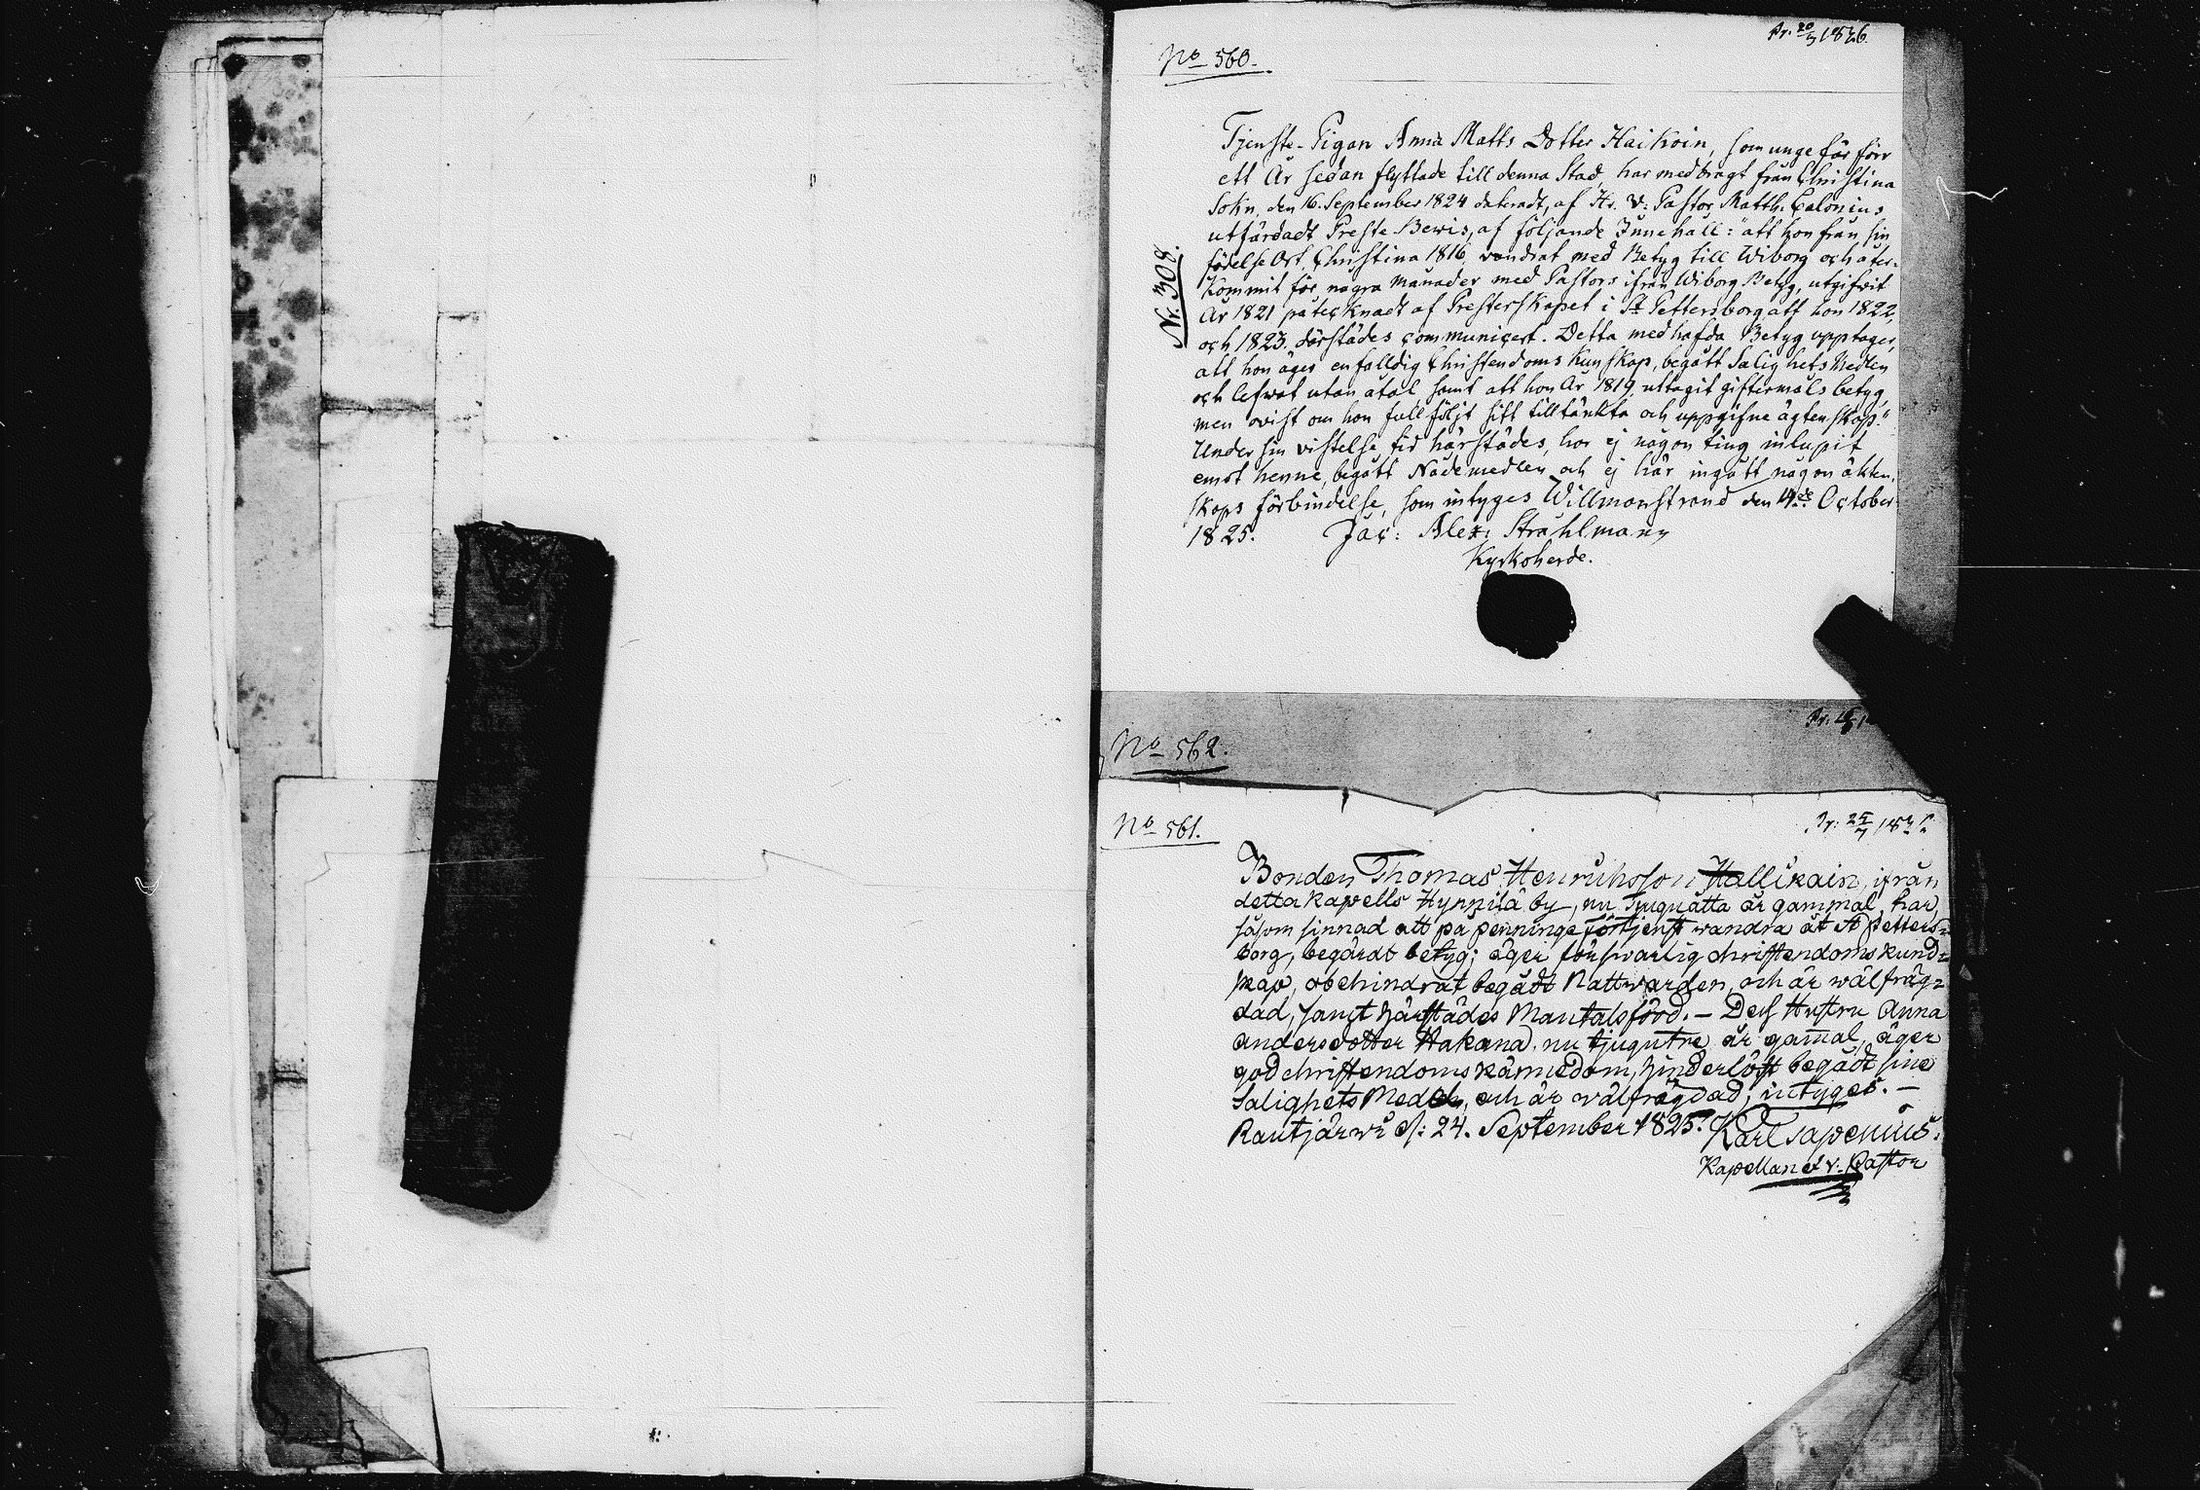 No 560.
Pr. 20/7 1826.
Nr. 308.
Tjenste-Pigan Anna Matts Dotter Haikoin, som ungefär förr
ett År sedan flyttade till denna Stad har medbragt från Christina
Sokn, den 16. September 1824 dateradt, af Hr. V: Pastor Matth: Calonius
utfärdadt Preste Bewis, af följande Innehåll: "att hon från sin
födelse Ort Christina 1816 vandrat med Betyg till Wiborg och åter-
kommit för några månader med Pastors ifrån Wiborg Betyg, utgifvit
År 1821 påtecknadt af Presterskapet i St Pettersborg att hon 1822,
och 1823. därstädes communicert. Detta medhafda Betyg upptager,
att hon äger enfalldig Christendoms Kunskap, begått Salighets Medlen
och lefwat utan åtal, samt att hon År 1819, uttagit giftermåls betyg,
men ovist om hon fullföljt sitt tilltänkta och uppgifne ägtenskap."
Under sin vistelse tid härstädes, har ej någon ting inlupit
emot henne, begått Nådemedlen och ej här ingått någon äkten-
skaps förbindelse, som intyges Willmanstrand den 4de October
1825. Jac: Alex: Strahlmann
Kyrkoherde.
No 562.
No 561.
Bonden Thomas Henriksson Hallikain, ifrån
detta kapells Hynnilä by, nu Tjuguåtta år gammal, har,
såsom sinnad att på penninge förtjenst wandra åt St Petters=
borg, begärdt betyg; äger försvarlig christendoms kund=
skap, obehindrat begådt Nattwarden, och är wälfräg=
dad, samt härstädes Mantalsförd. – Dess Hustru Anna
Andersdotter Hakana, nu tjugutre år gam̄al, äger
god christendoms kännedom, hinderlöst begådt sine
Salighets Medel, och är wälfrägdad; intyges. –
Rautjärwi d: 24. September 1825. Karl
Kapellan et v. Pastor